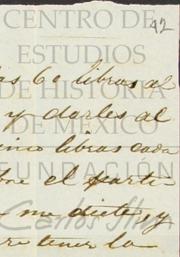 42
CENTRO DE
ESTUDIOS
DE HISTORIA
DE MÉXICO
FUNDACIÓN
Carlos Slim
las 60 libras al
y darles al
cinco libras cada
el parti-
me dicte, y
tener lo